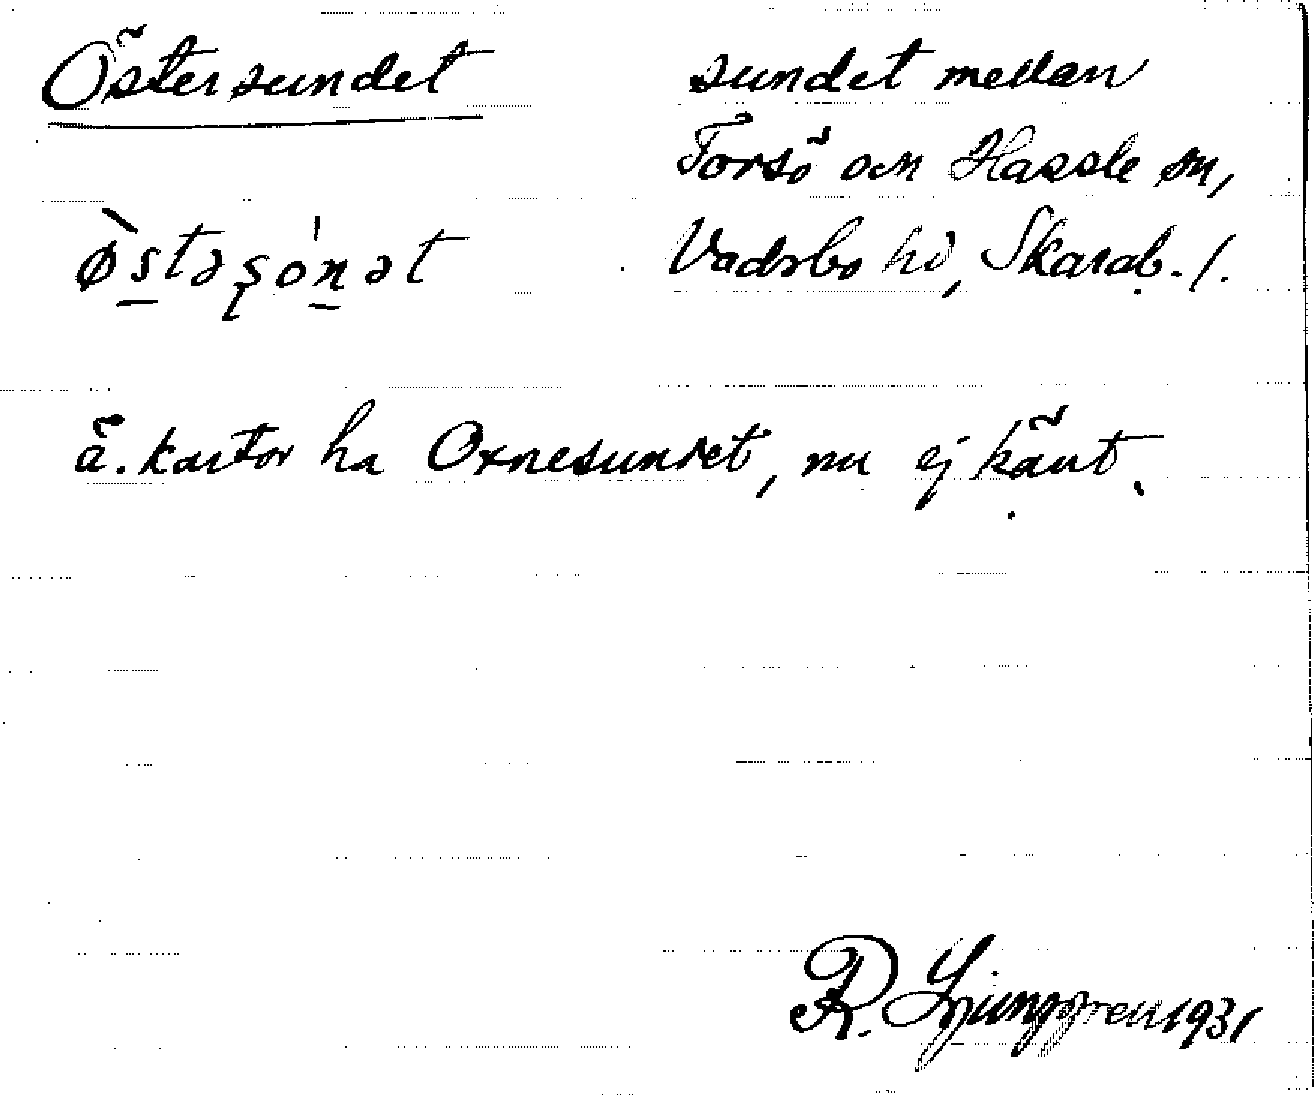 Östersundet
sundet mellan
Torsö och Hassle sn,
Vadsbo hd, Skarab. l.
ø̀s̱təʂón̠ət
ä. kartor ha Oxnesundet, nu ej känt.
R. Ljunggren 1931